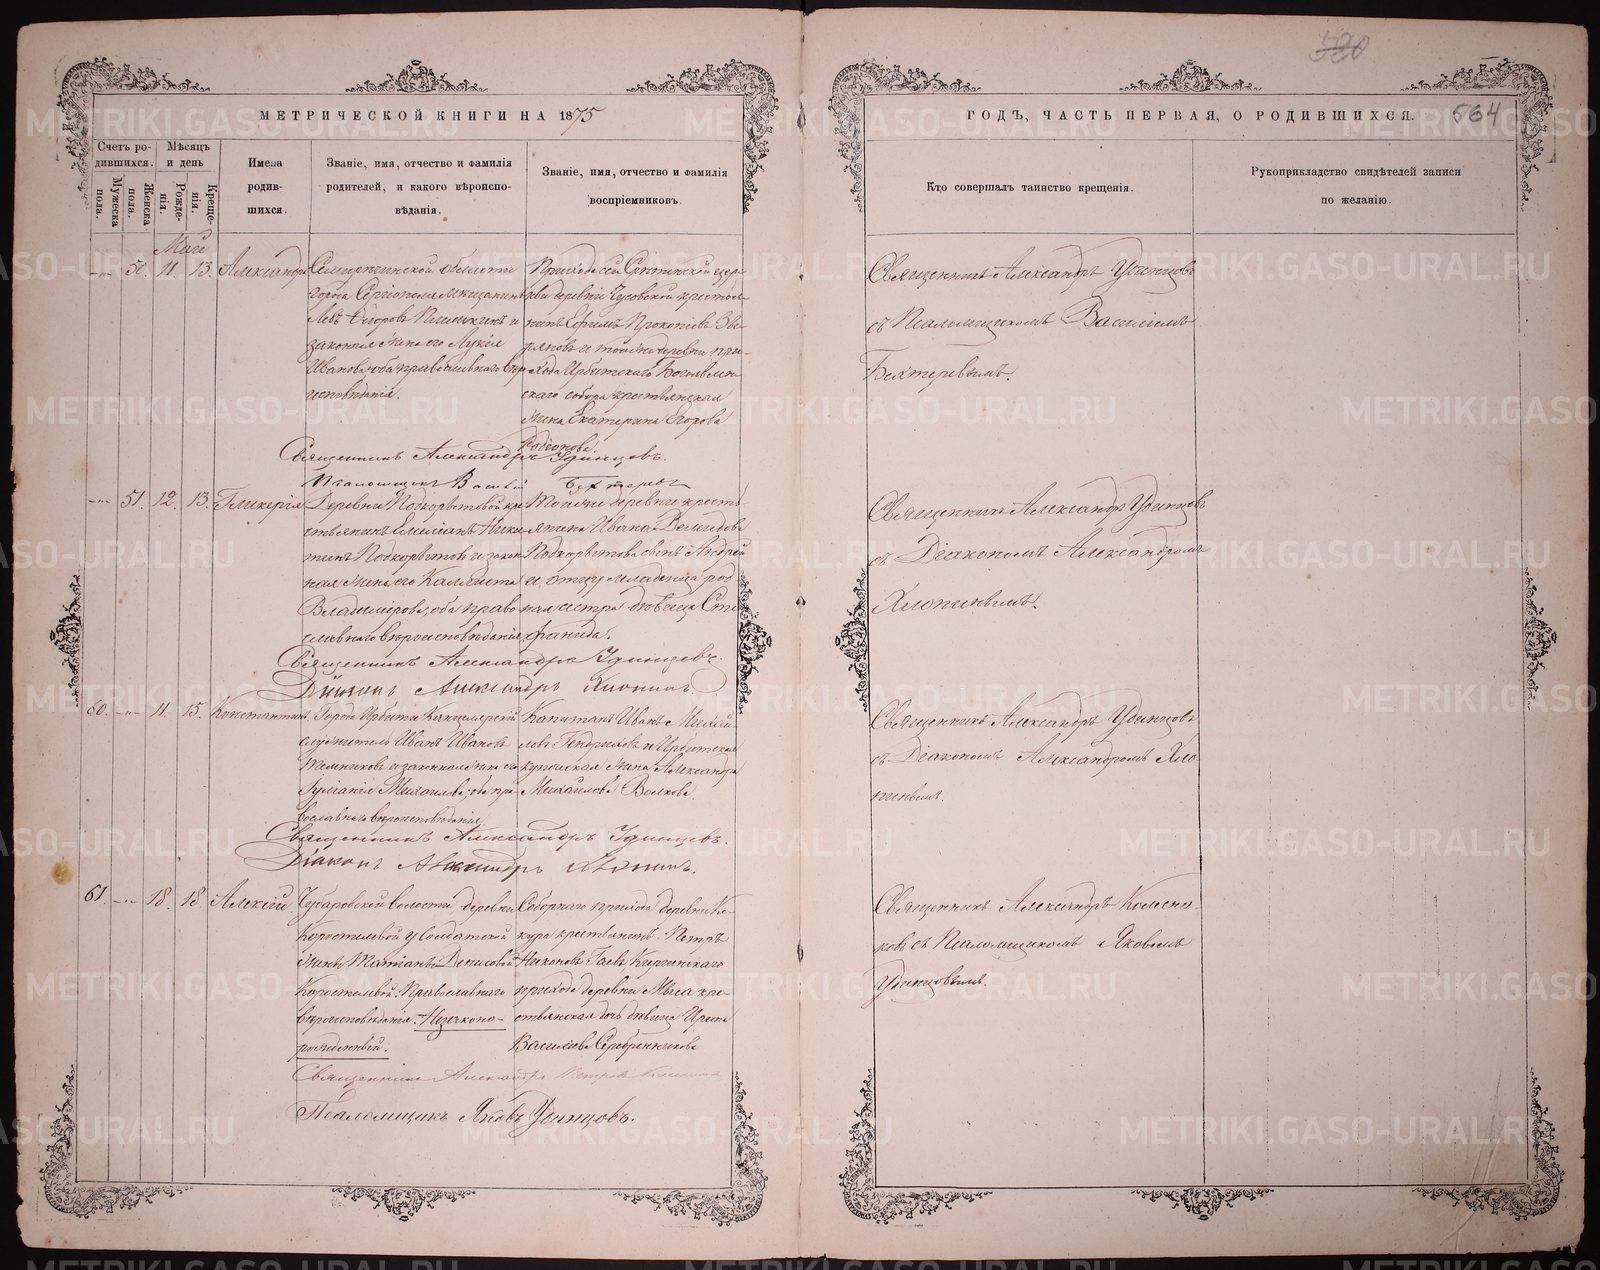 520
МЕТРИЧЕСКОЙ КНИГИ НА 1875
ГОДЪ, ЧАСТЬ ПЕРВАЯ, О РОДИВШИХСЯ.
564
Счетъ родившихся.
Мѣсяцъ и день
Мужеска пола.
Женска пола.
Рожденія.
Крещенія.
Имена
родив-
шихся.
Званіе, имя, отчество и фамилія
родителей, и какого вѣроиспо-
вѣданія.
Званіе, имя, отчество и фамилія
воспріемниковъ.
Кто совершалъ таинство крещенія.
Рукоприкладство свидѣтелей записи
по желанію.
50. 11. 13. Александра
города Сергіополя мѣщанинъ
законная жена его Лукія
Иванова, оба православнаго
исповѣданія.
деревни Чусовской крестья-
нинъ Ефимъ Прокопіевъ Зве-
ревъ и той же деревни при-
хода Ирбитскаго Богоявлен-
скаго собора крестьянская
жена Екатерина Егорова
Родіонова.
Священникъ Александръ Удинцовъ
съ Псаломщикомъ Василіемъ
Бехтеревымъ.
Священникъ Александръ Удинцовъ.
Псаломщикъ Василій Бехтеревъ
51. 12. 13. Гликерія
Деревни Подкорытовой кре-
стьянинъ Емеліанъ Ники-
тинъ Подкорытовъ и закон-
ная жена его Каллиста
Владимірова, оба право-
славнаго вѣроисповѣданія
Той же деревни кресть-
янина Ивана
Подкорытова сынъ Андрей
и отцу младенца род-
ная сестра дѣвица Сте-
фанида.
Священникъ Александръ Удинцовъ
съ Діакономъ Александромъ
Хлопинымъ.
Священникъ Александръ Удинцовъ.
Діаконъ Александръ Хлопинъ.
60. 11. 15. Константинъ
Города Ирбити Канцелярскій
служитель Иванъ Ивановъ
и законная жена его
Михаилова, оба пра-
вославнаго вѣроисповѣданія
Капитанъ Иванъ Михай-
ловъ Гендриховъ и Ирбитская
купеческая жена Александра
Михайлова Волкова.
Священникъ Александръ Удинцовъ
съ Діакономъ Александромъ Хло-
пинымъ.
Священникъ Александръ Удинцовъ.
Діаконъ Александръ Хлопинъ.
61. 18. 18. Алексій
Чубаровской волости, деревни
Коростелевой у солдатской
жены Татіаны Денисовой
Коростелевой, Православнаго
вѣроисповѣданія. Незаконо-
рожденный.
Соборнаго прихода деревни Ке-
кура крестьянинъ Петръ
Никоновъ Гаевъ Киргинскаго
прихода деревни Мыса кре-
стьянская дочь дѣвица Ирина
Василіева Серебренникова
Священникъ Александръ Колесни-
ковъ съ Псаломщикомъ Яковомъ
Удинцовымъ.
Священникъ Александръ Петровъ
Псаломщикъ Яковъ Удинцовъ.
METRIKI.GASO-URAL.RU